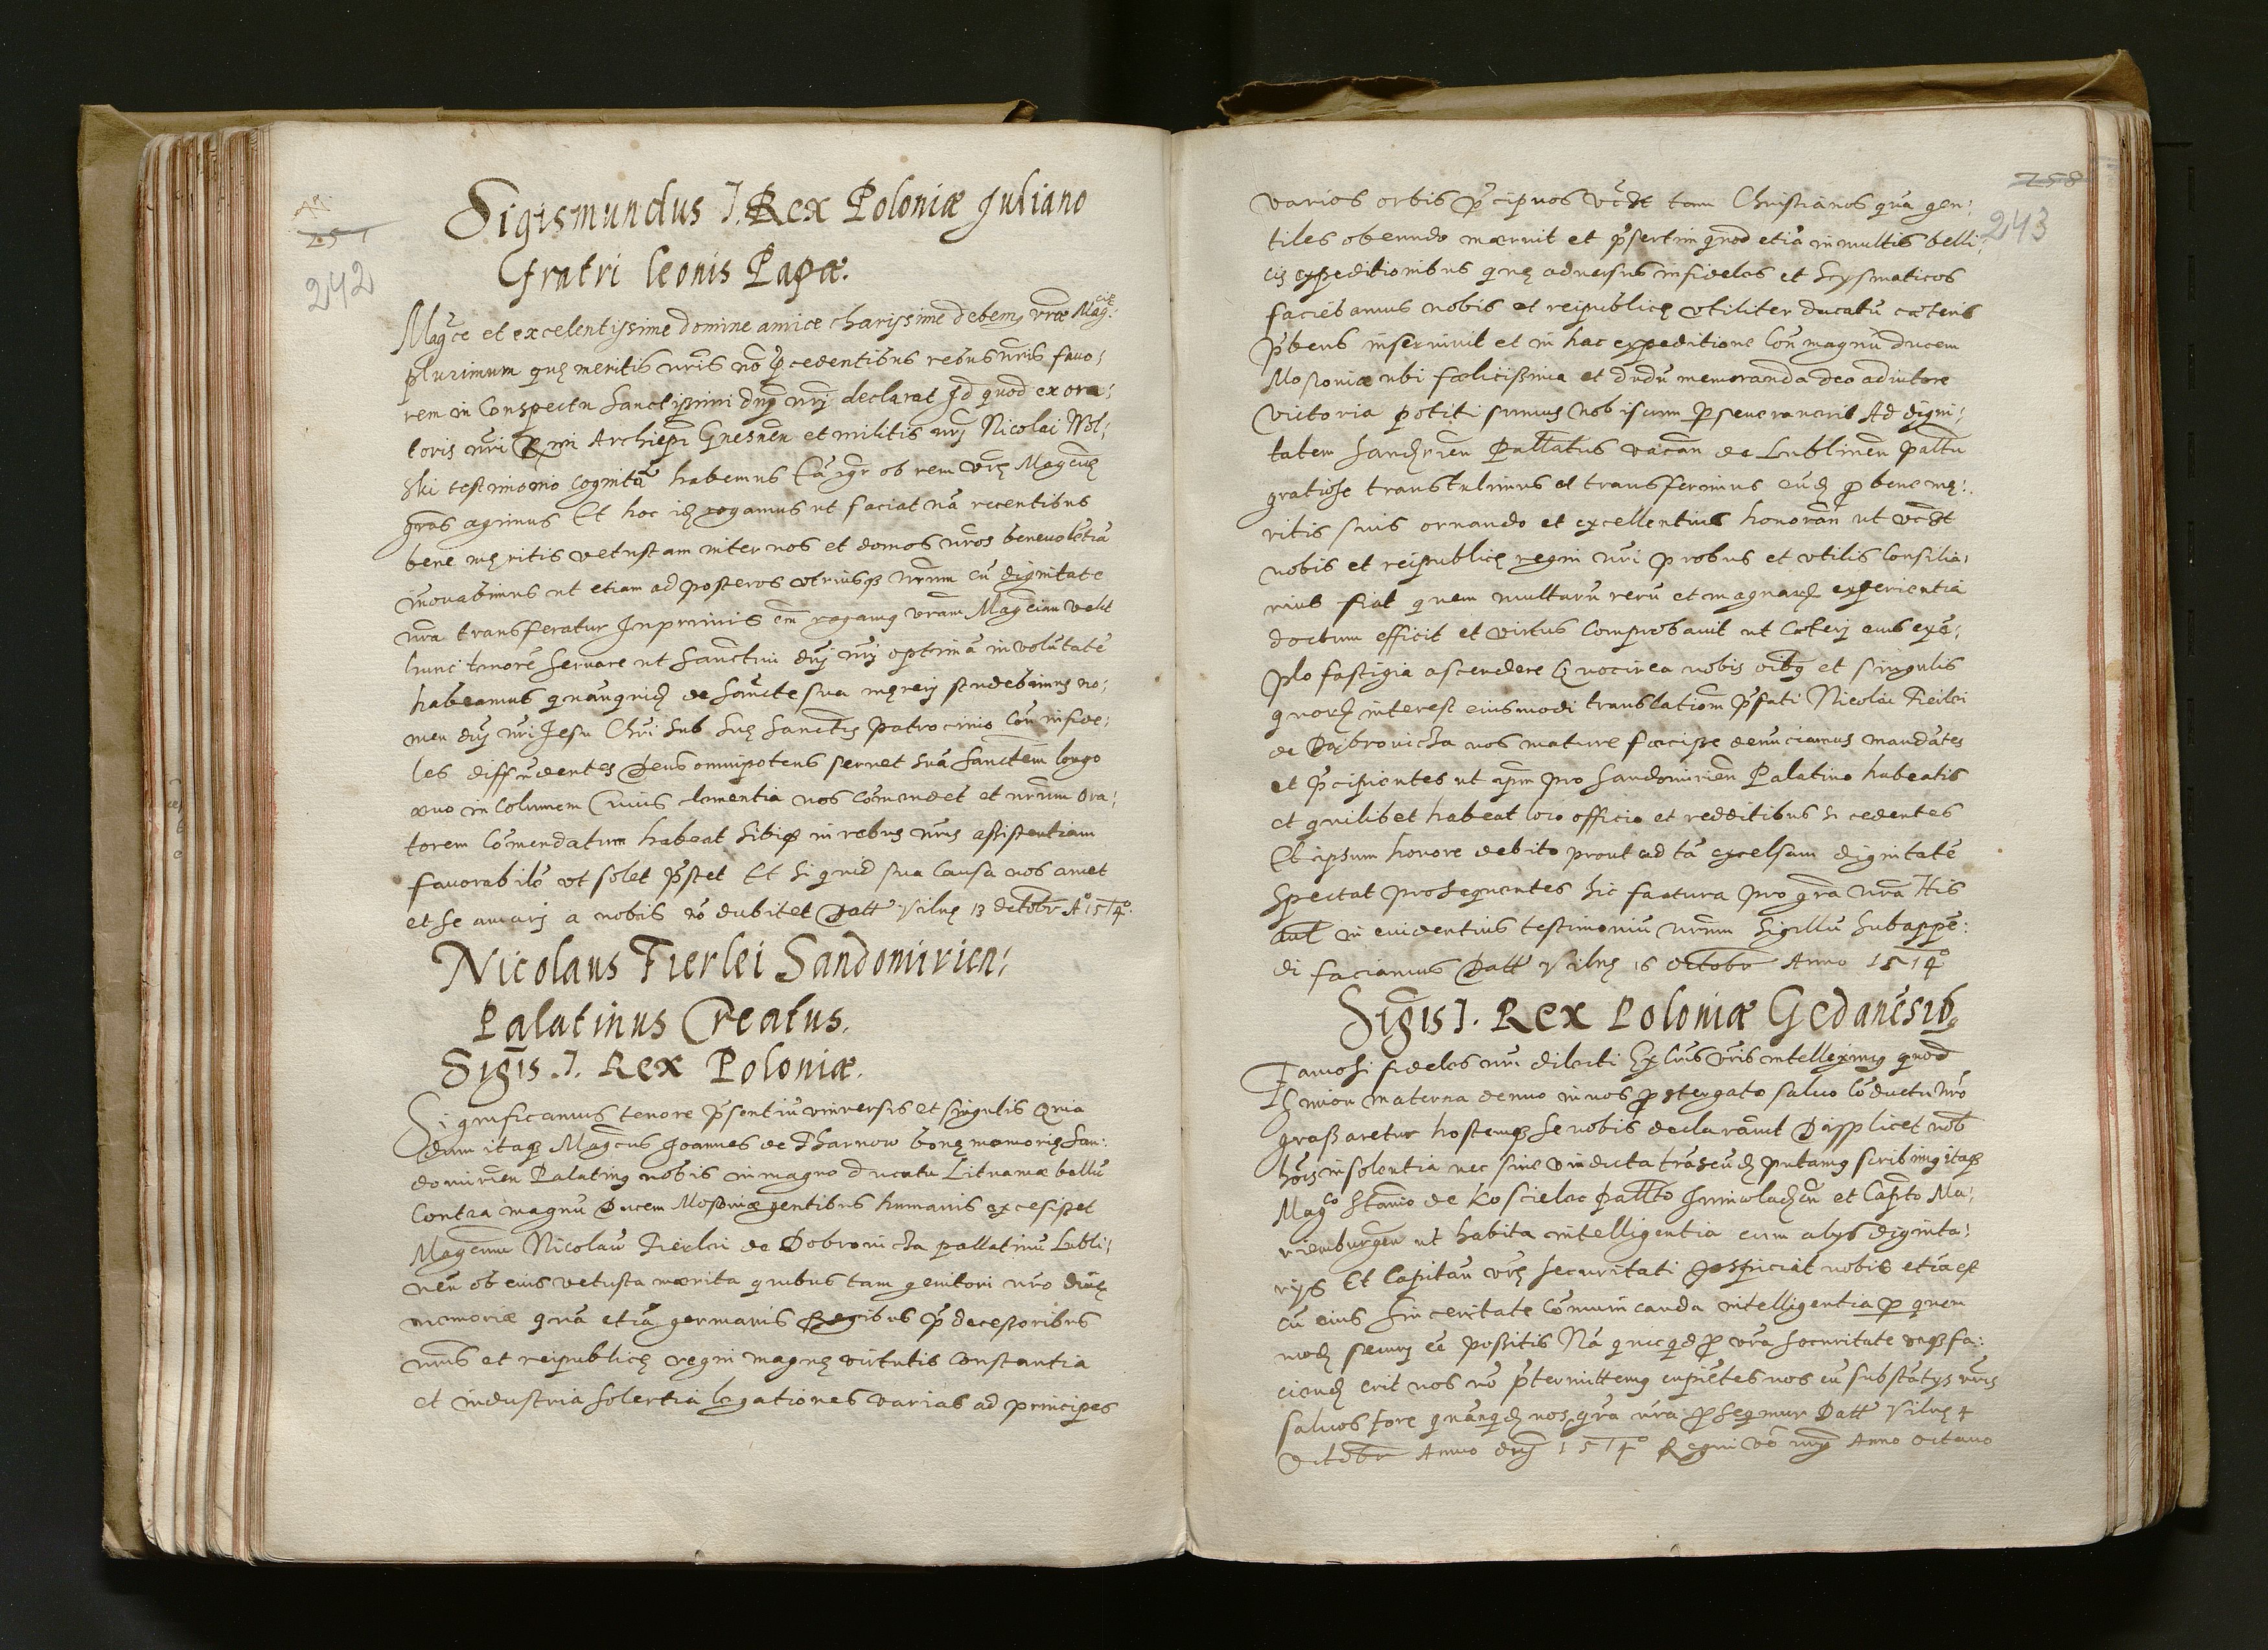 242
Sigismundus I. Rex Poloniæ Juliano
fratri leonis Papæ.
Magce et excelentissime domine amice charissime debemus vræ Mag:cie
plurimum quę meritis nris nō p̄cedentibus rebus nris favo:
rem in Conspectu Sanctissimi dnj nrj declarat Id quod ex ora:
toris nri Rmi Archiepi Gnesnen et militis nrj Nicolai Wol:
ski testimonio cognitū habemus Eā igr ob rem vrę Magciæ
gras agimus Et hoc idē rogamus ut faciat nā recentibus
bene męritis vetustam inter nos et domos nros benevolētiā
iñovabimus ut etiam ad posteros utriusqꝫ nrum cū dignitate
nra transferatur Inprimis em̄ rogamus vram Magciam velit
hunc tenorē servare ut Sanctmi dnj nrj optimā in volūtate
habeamus quāquidē de Sancte sua męrerj studebimus no:
men dnj nri Jesu Chri sub suę Sanctis patrocinio Con infide:
les diffūdentes Deus omnipotens servet suā Sanctem longo
ævo in columem Cuius clementia nos Cōmendet et nrum Ora:
torem Cōmendatum habeat sibiqꝫ in rebus nris assistentiam
favorabilē ut solet p̄stet Et si quid sua causa nos amet
et se amarj a nobis nō dubitet Datt Vilnę 13 Octobr Aº 1514º.
Nicolaus Fierlei Sandomirien:
Palatinus Creatus.
Sigis. I. Rex Poloniæ.
Significamus tenore p̄sentiū universis et singulis Qria
dum itaqꝫ Magcus Joannes de Tharnow bonę memorię San:
domirien Palatinus nobis in magno ducatu Lituaniæ bellū
Contra magnū Ducem Mosoniæ gentibus humanis excesisset
Magcum Nicolaū Fierlei de Dobrovicza pallatinū Lubli:
nen ob eius vetusta mærita quibus tam genitori nro divę
memoriæ quā etiā germanis Regibus p̄decessoribus
nris et reipublicę regni magnę virtutis Constantia
et industria solertia legationes varias ad principes
258
243
varios orbis p̄cipuos vcdt tam Christianos quā gen:
tiles obeundo mæruit et p̄sertim quod etiā in multis belli:
cis expeditionibus quę adversus infideles et Scysmaticos
faciebamus nobis et reipublicę utiliter ducatū cæteris
p̄bens inservivit et in hac expeditione Con magnū ducem
Mosoniæ ubi fœlicissima et dudū memoranda deo adiutore
victoria potiti sumus nobiscum p̄severaverit Ad digni:
tatem Sandnien Pallatus vacan de Lublinen paltu
gratiose transtulimus et transferimus eūdē pro bene mę:
ritis suis ornando et excellentius honoran ut vcdt
nobis et reipublicę regni nri probus et utilis Consilia:
rius fiat quem multarū rerū et magnarū experientia
doctum efficit et virtus Comprobavit ut Cæterj eius exē:
plo fastigia ascendere Quocirca nobis oibus et singulis
quorū interest eiusmodi translationem p̄fati Nicolai Fierlei
de Dąbrovicza nos mature fæcisse denūciamus mandātes
et p̄cipientes ut ipm pro Sandomirien Palatino habeatis
et quilibet habeat loco officio et redditibus si cedentes
Et ipsum honore debito prout ad tā excelsam dignitatē
spectat prosequentes sic factura pro gra nra His
aut in evidentius testimoniū nrum Sigillū subappē:
di faciamus Datt Vilnę 16 Octobr Anno 1514º
Sigis I. Rex Poloniæ Gedanēsibꝯ
Famosi fideles nri dilecti Ex lris vris intelleximus quod
materna denuo in nos p̄stergato salvo cōductu nro
grassaretur hostemqꝫ se nobis declaravit Displicet nob
hois insolentia nec sine vindicta trāseūd putamus scribimus itaqꝫ
Magco Stano de Koscielec pallto Juniwladislcn et Capto Ma:
rienburgen ut habita intelligentia cum alys dignita:
rijs Et Capitan vrę securitati prospiciat nobis etiā est
cū eius sinceritate Cōmunicanda intelligentia p quem
modū securj eē possitis Nā quicqd pro vra securitate unqꝫ fa:
ciendū erit nos nō p̄termittemus cupiētes nos cū substātys vris
salvos fore quāqd nos gra nra prosequimur Datt Vilnę 4
Octobr Anno dnj 1514º Regni vō nrj Anno Octavo